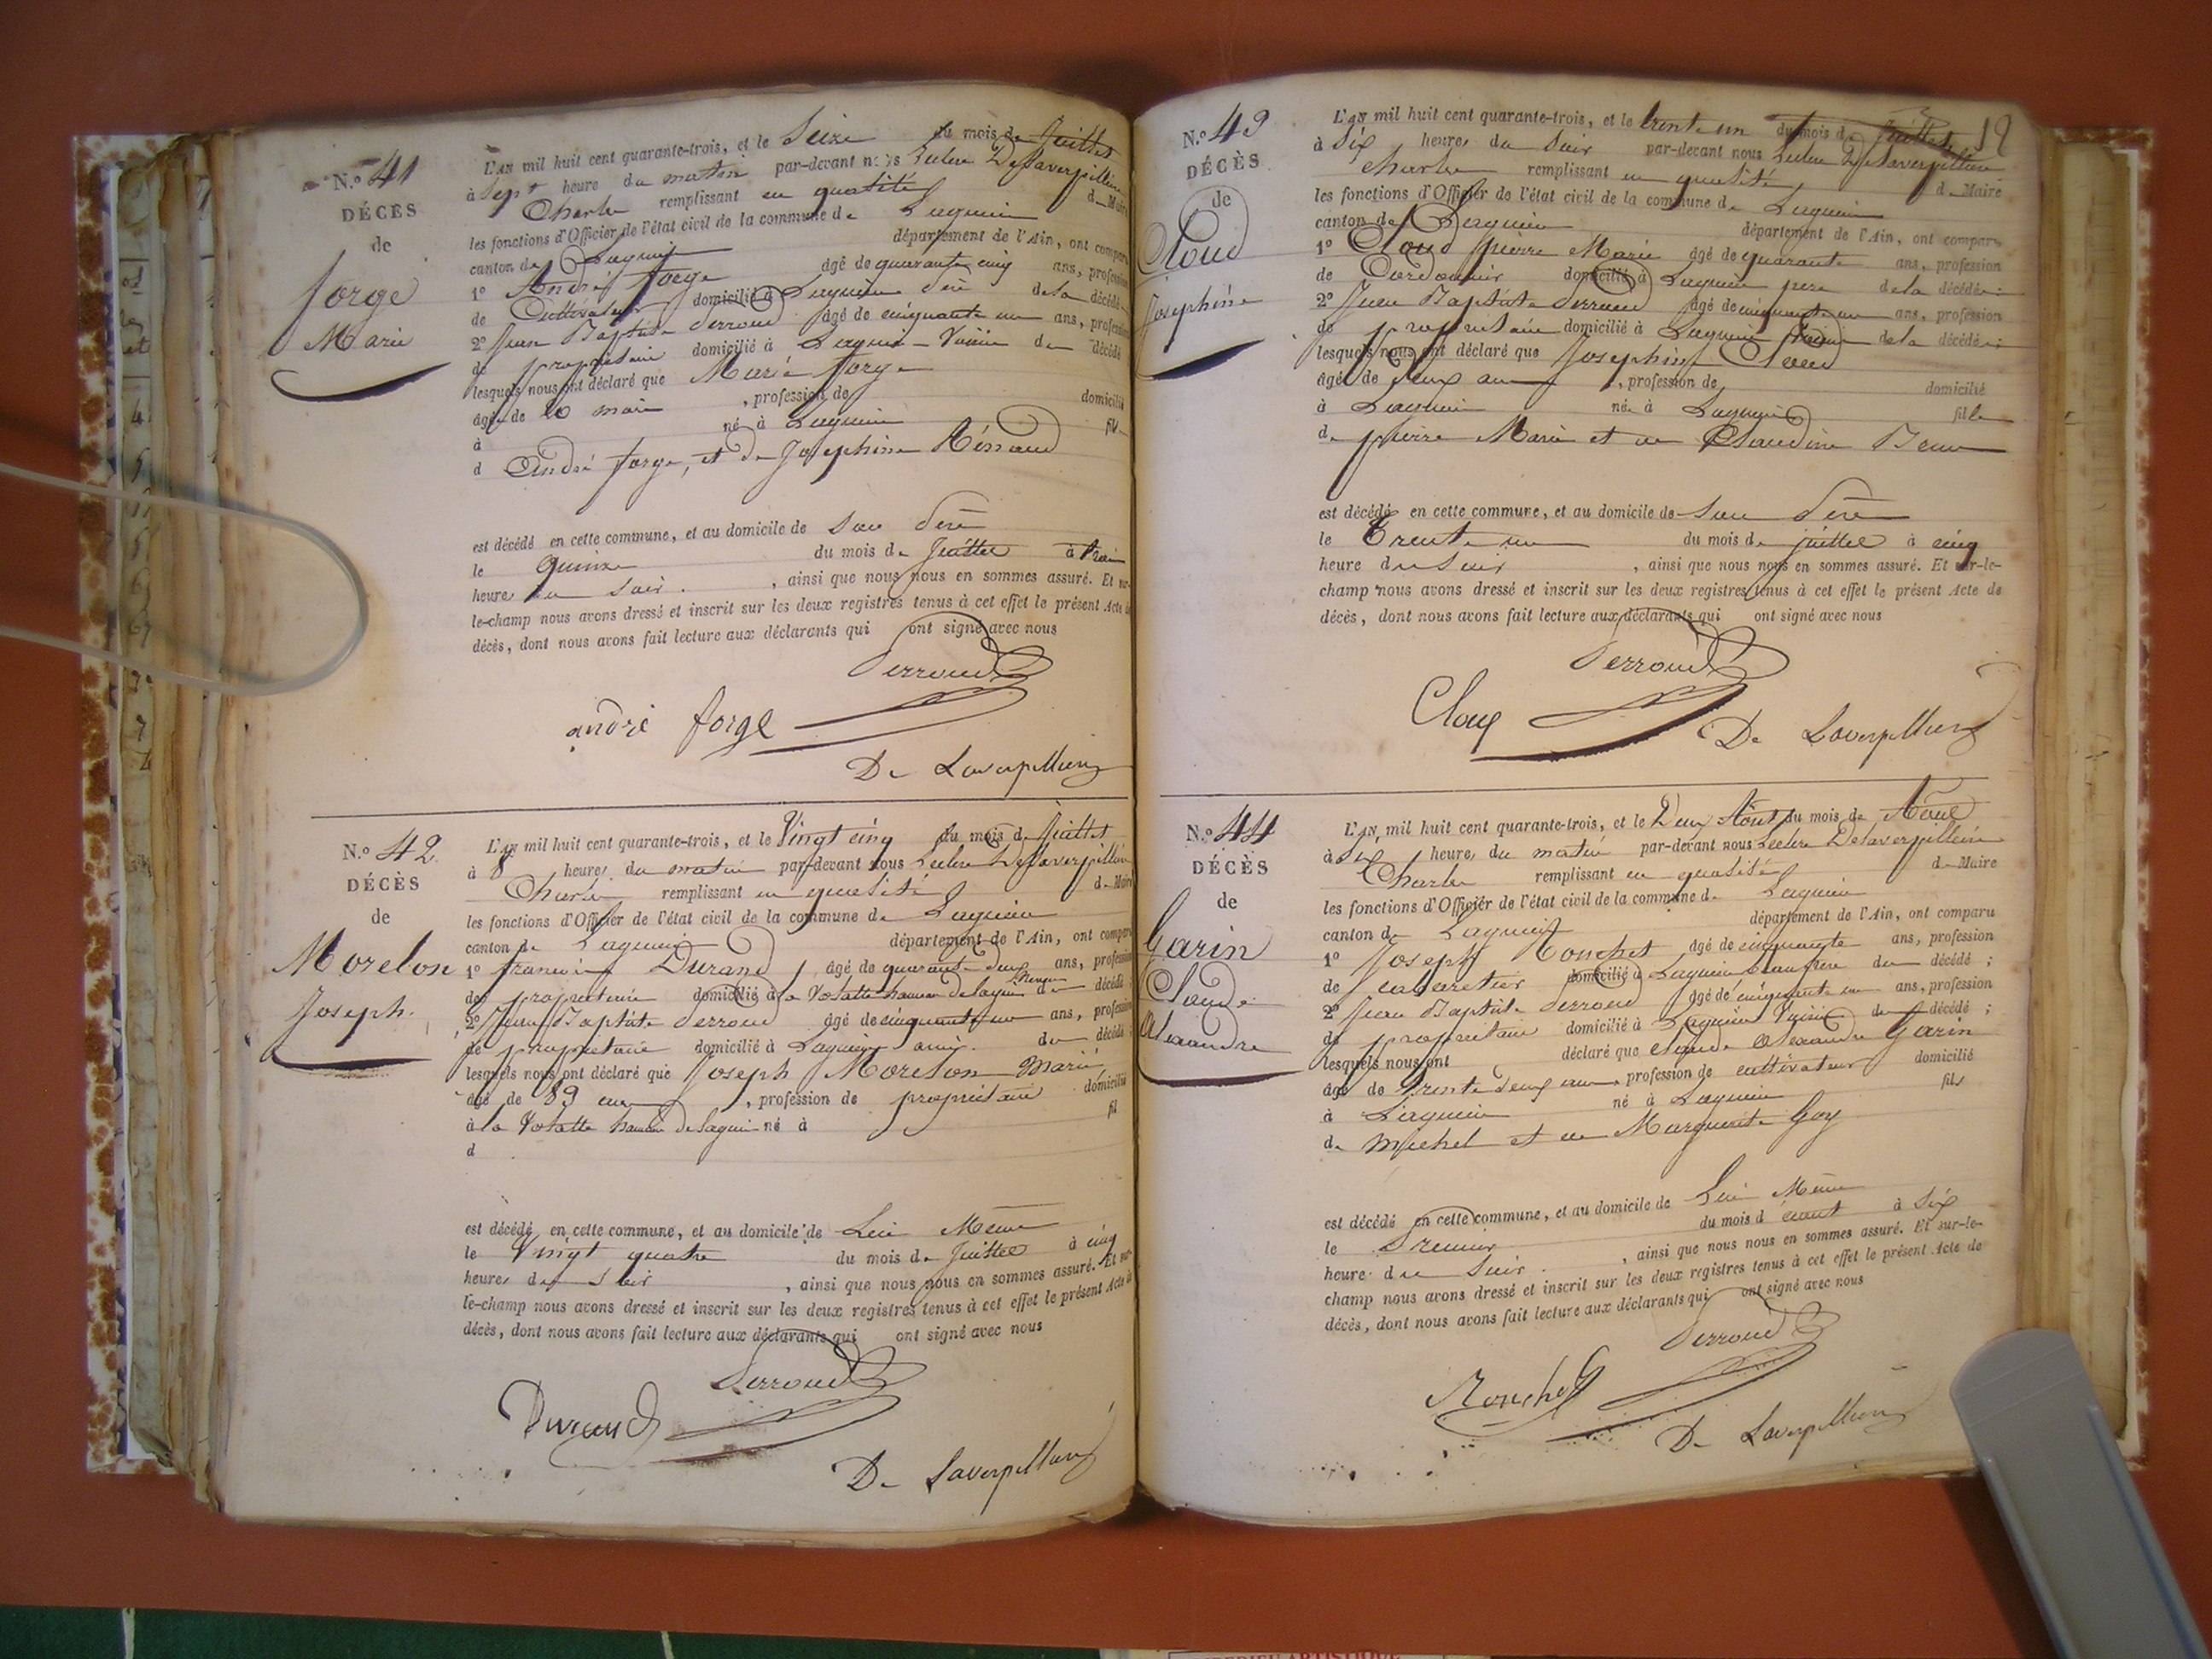 N.o 41
DÉCÈS
de
forge
Marie
L'an mil huit cent quarante-trois, et le Seize du mois de Juillet
à Sept heure du matin par-devant nous Leclerc Delaverpillière
Charles remplissant en qualité de Maire
les fonctions d'Officier de l'état civil de la commune de Lagnieu
canton de Lagnieu département de l'Ain, ont comparu
1o André forge âgé de quarante cinq ans, profession
de Cultivateur domicilié à Lagnieu père de la décédée
2o Jean Baptiste Perroud âgé de cinquante un ans, profession
de propriétaire domicilié à Lagnieu Voisin de décédé
lesquels nous ont déclaré que Marie forge
âgé de mois , profession de domicilié
à né à Lagnieu fil
d André forge, et de Josephine Rénaud
est décédé en cette commune, et au domicile de Son Père
le quinze du mois de Juillet à trois
heures du Soir. , ainsi que nous nous en sommes assuré. Et sur-
le-champ nous avons dressé et inscrit sur les deux registres tenus à cet effet le présent Acte de
décès, dont nous avons fait lecture aux déclarants qui ont signé avec nous
Perroud
andré forge
De Laverpillière
N.o 42
DÉCÈS
de
Morelon
Joseph.
L'an mil huit cent quarante-trois, et le Vingt cinq du mois de Juillet
à 8 heures du matin par-devant nous Leclerc Delaverpillière
Charles remplissant en qualité de Maire
les fonctions d'Officier de l'état civil de la commune de Lagnieu
canton de Lagnieu département de l'Ain, ont comparu
1o françois Durand âgé de quarante deux ans, profession
de propriétaire domicilié à la hameau de Lagnieu du décédé
2o Jean Baptiste Perroud âgé de cinquante un ans, profession
de propriétaire domicilié à Lagnieu ami du décédé
lesquels nous ont déclaré que Joseph Morelon Marié
âgé de 89 ans , profession de propriétaire domicilié
à la hameau de Lagnieu né à fil
d
est décédé en cette commune, et au domicile de Lui Même
le Vingt quatre du mois de Juillet à cinq
heures du Soir , ainsi que nous nous en sommes assuré. Et sur-
le-champ nous avons dressé et inscrit sur les deux registres tenus à cet effet le présent Acte de
décès, dont nous avons fait lecture aux déclarants qui ont signé avec nous
Perroud
Durand
De Laverpillière
19
N.o 43
DÉCÈS
de
Cloud
Josephine
L'an mil huit cent quarante-trois, et le trente un du mois de Juillet
à Six heures du Soir par-devant nous Leclerc Delaverpillière
Charles remplissant en qualité de Maire
les fonctions d'Officier de l'état civil de la commune de Lagnieu
canton de Lagnieu département de l'Ain, ont comparu
1o Cloud pierre Marie âgé de quarante ans, profession
de Cordonnier domicilié à Lagnieu père de la décédée;
2o Jean Baptiste Perroud âgé de cinquante un ans, profession
de propriétaire domicilié à Lagnieu Voisin de la décédée;
lesquels nous ont déclaré que Josephine Cloud
âgé de deux ans , profession de domicilié
à Lagnieu née à Lagnieu fille
de pierre Marie et de Claudine
est décédé en cette commune, et au domicile de Son Père
le Trente un du mois de juillet à cinq
heure du Soir , ainsi que nous nous en sommes assuré. Et sur-le-
champ nous avons dressé et inscrit sur les deux registres tenus à cet effet le présent Acte de
décès, dont nous avons fait lecture aux déclarants qui ont signé avec nous
Perroud
De Laverpillière
N.o 44
DÉCÈS
de
Garin
Claude
Alexandre
L'an mil huit cent quarante-trois, et le Deux Aout du mois de Aout
à Six heures du matin par-devant nous Leclere Delaverpillière
Charles remplissant en qualité de Maire
les fonctions d'Officier de l'état civil de la commune de Lagnieu
canton de Lagnieu département de l'Ain, ont comparu
1o Joseph Ronchet âgé de cinquante ans, profession
de cabaretier domicilié à Lagnieu beaufrère du décédé;
2o Jean Baptiste Perroud âgé de cinquante un ans, profession
de propriétaire domicilié à Lagnieu Voisin du décédé;
lesquels nous ont déclaré que Claude Alexandre Garin
âgé de trente deux ans, profession de cultivateur domicilié
à Lagnieu né à Lagnieu fils
de Michel et de Marguerite Goy
est décédé en cette commune, et au domicile de Lui Même
le Premier du mois d'aout à Six
heure du Soir. , ainsi que nous nous en sommes assuré. Et sur-le-
champ nous avons dressé et inscrit sur les deux registres tenus à cet effet le présent Acte de
décès, dont nous avons fait lecture aux déclarants qui ont signé avec nous
Perroud
Ronchet
De Laverpillière